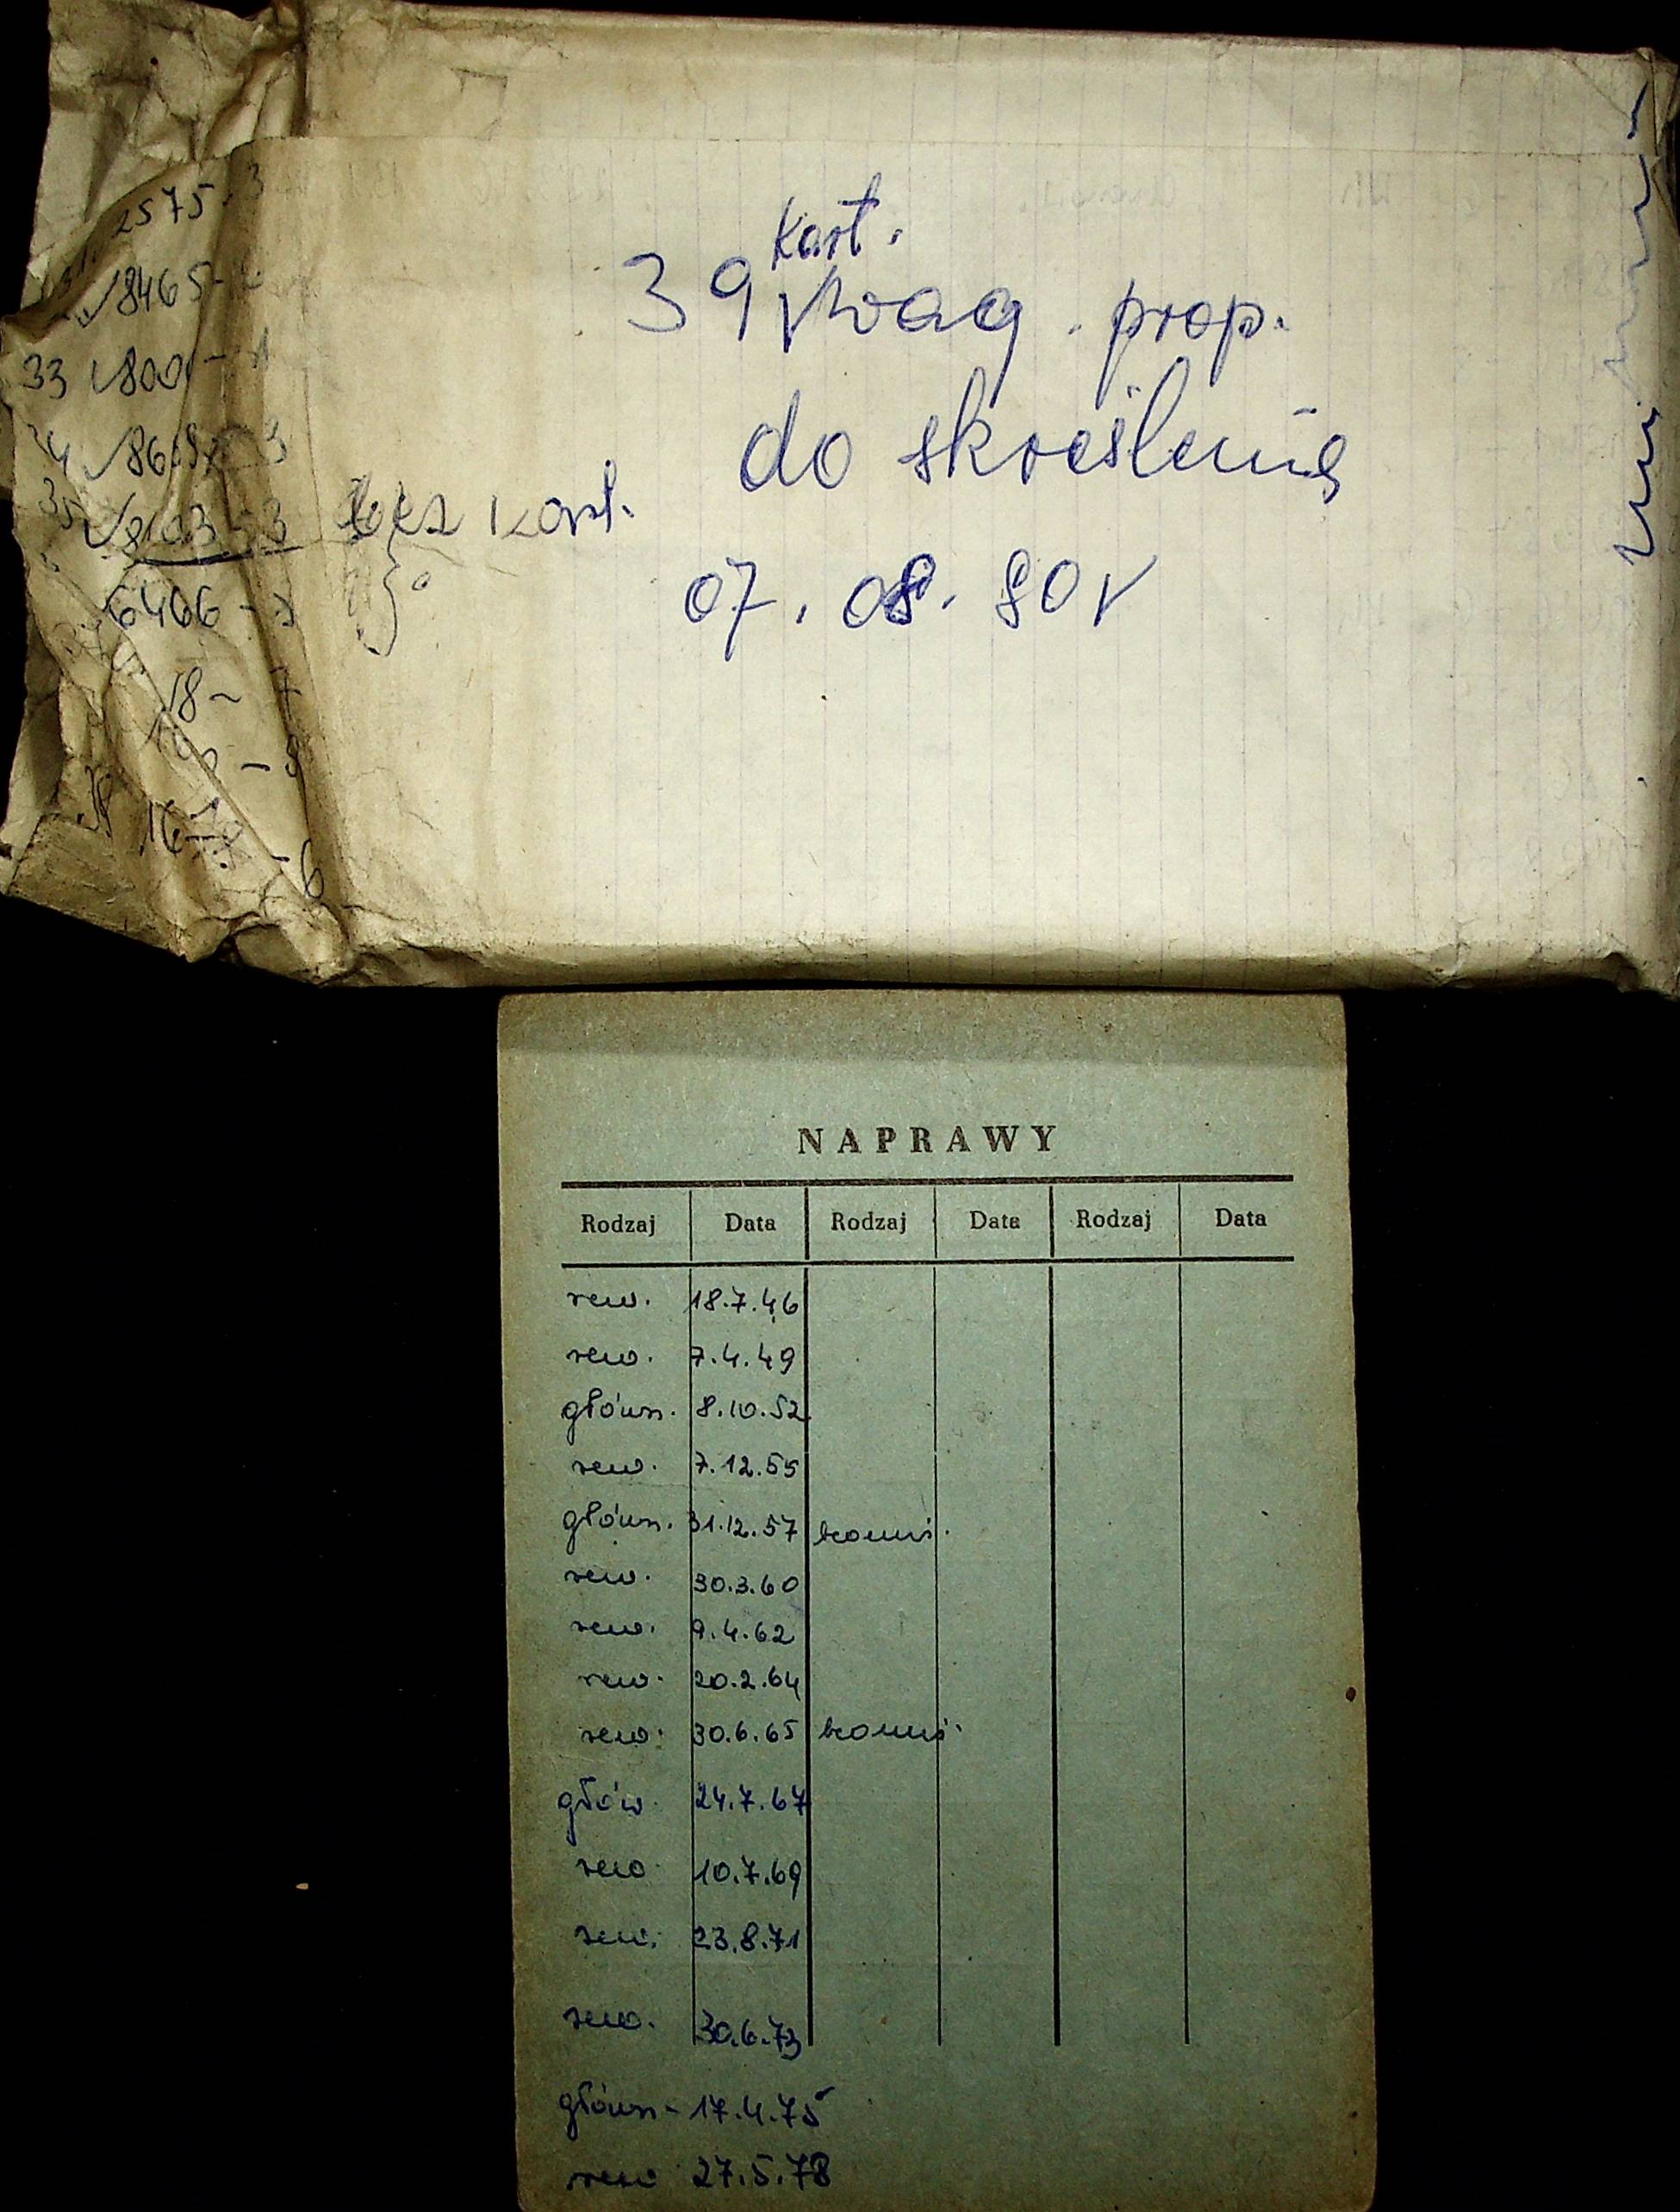 kart.
39 wag. prop.
do skreślenia
07. 08. 80 r
2575-3
8465-
33 800 - 1
86 3
35 8103 53 bez kart.
6466 -
18 - 7
- 9
16-
- 6
NAPRAWY
Rodzaj Data Rodzaj Data Rodzaj Data
rew. 18.7.46
rew. 7.4.49
główn. 8.10.52
rew. 7.12.55
główn. 31.12.57
rew. 30.3.60
rew. 9.4.62
rew. 20.2.64
rew. 30.6.65
głów. 24.7.67
rew. 10.7.69
rew. 23.8.71
rew. 30.6.73
główn - 17.4.75
rew 27.5.78